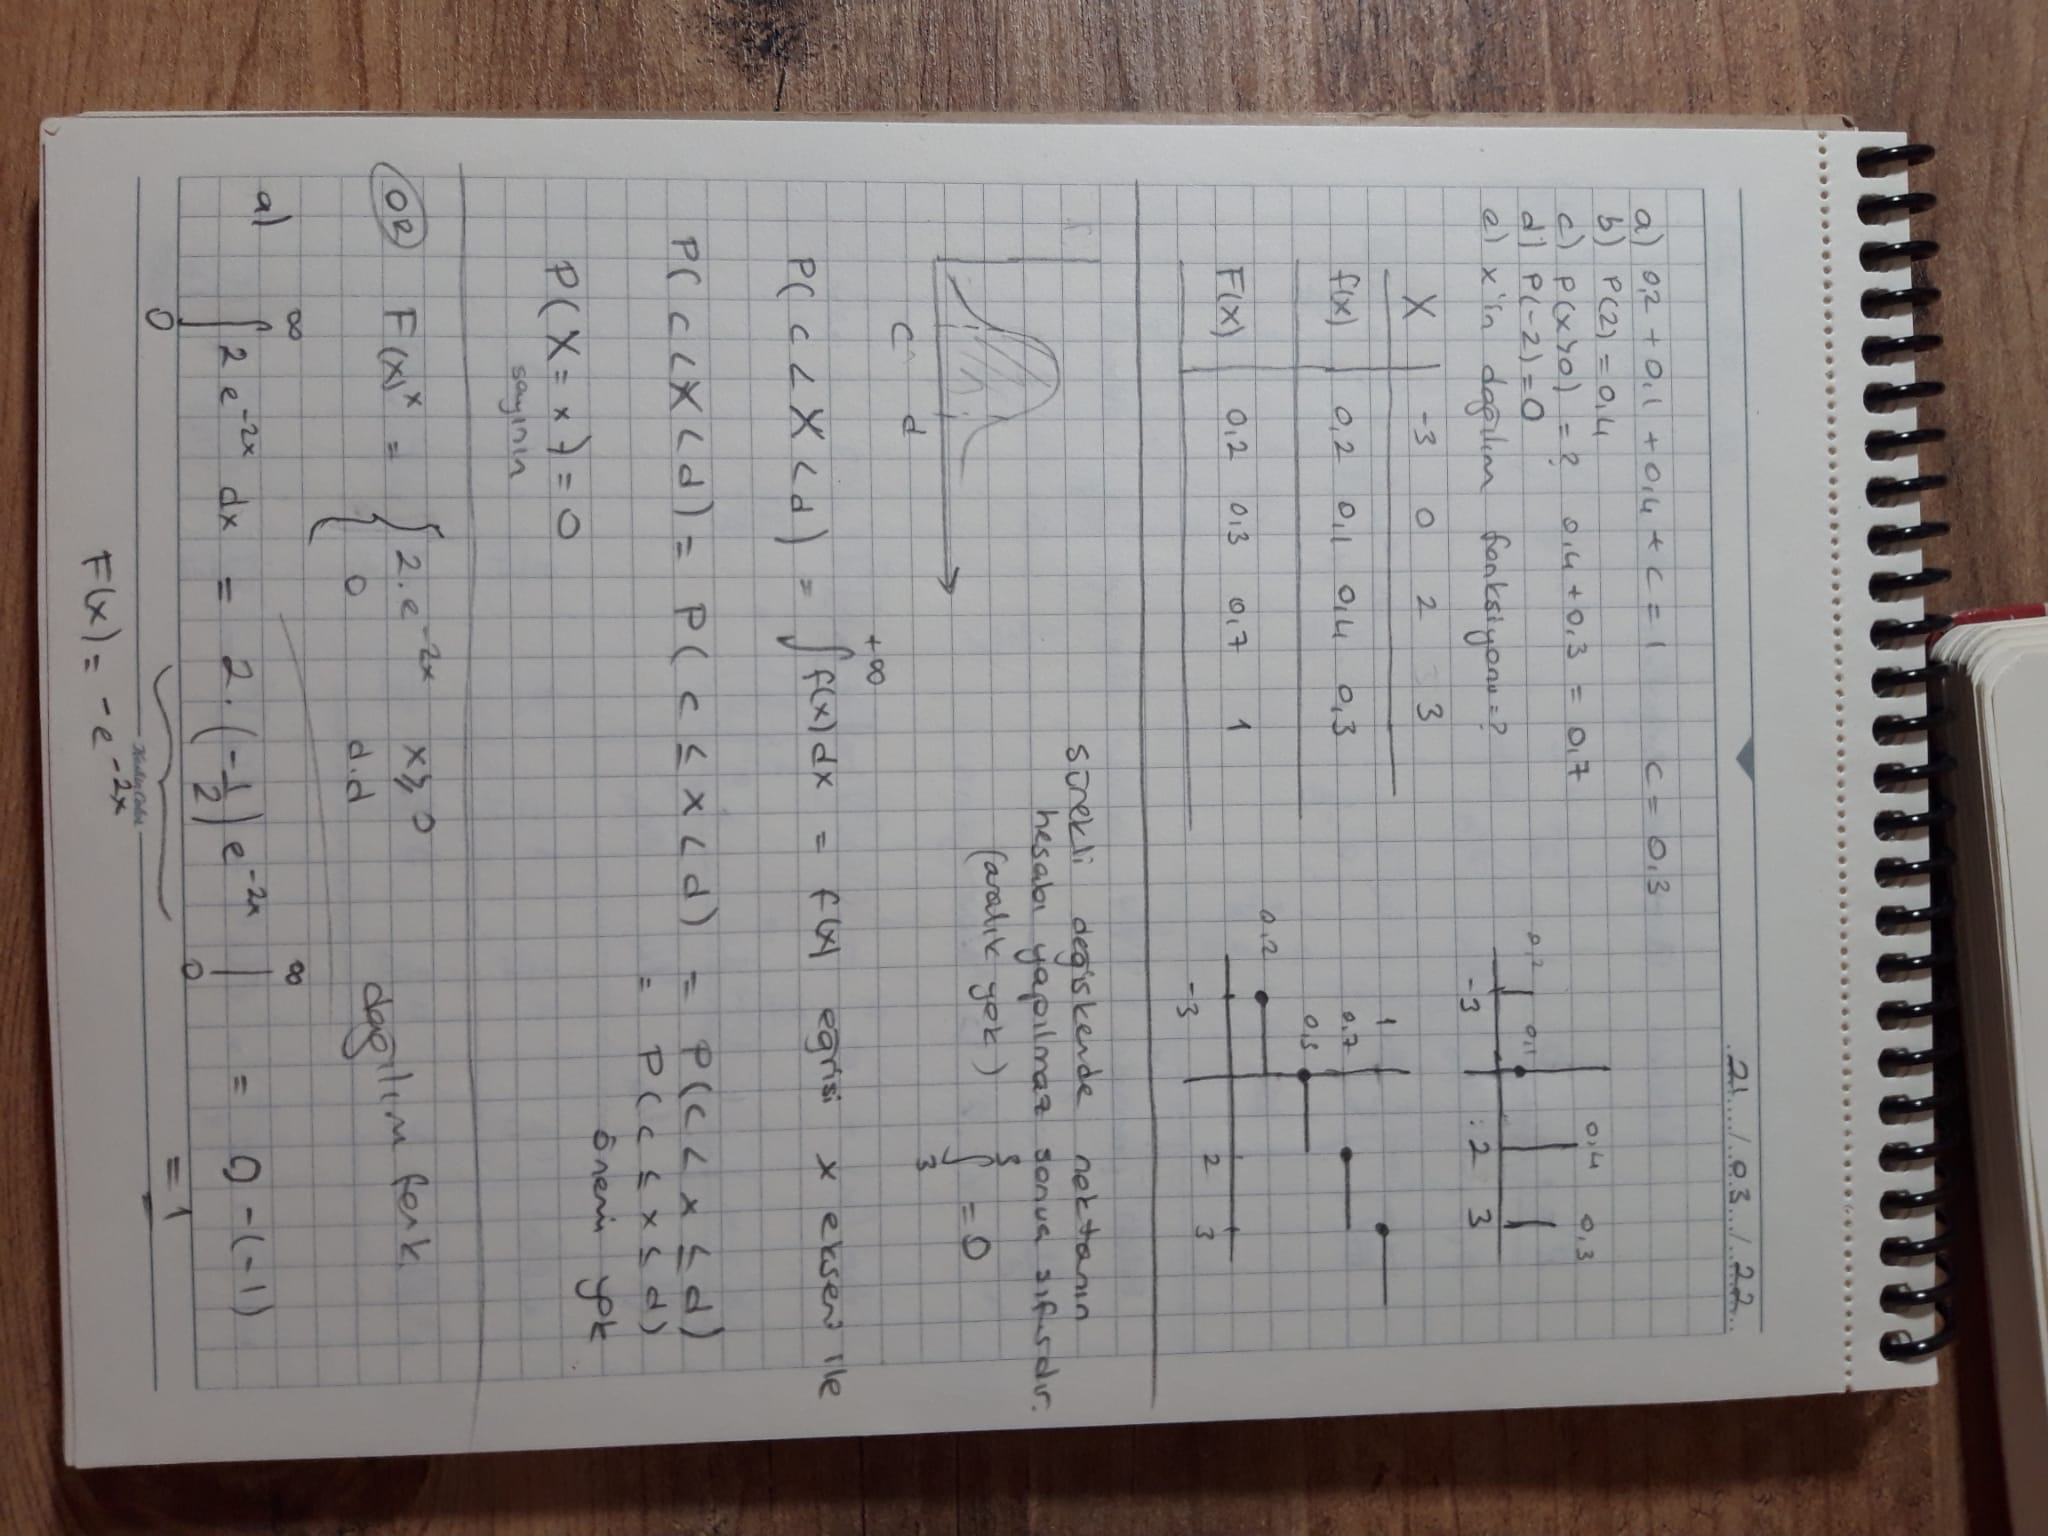 21../.03./..22..
a) 0,2 + 0,1 + 0,4 + c = 1 c = 0,3
b) P(2) = 0,4
c) P(x>0) = ? 0,4 + 0,3 = 0,7
d) P(-2) = 0
e) x'in dağılım fonksiyonu = ?
0,2 0,1 0,4 0,3
-3 2 3
X -3 0 2 3
f(x) 0,2 0,1 0,4 0,3
F(x) 0,2 0,3 0,7 1
1
0,7
0,3
0,2
-3 2 3
sürekli değişkende noktanın
hesabı yapılmaz sonucu sıfırdır.
(aralık yok) ∫ 3 = 0
c d
P( c < X < d ) = ∫ +∞ f(x) dx = f(x) eğrisi x ekseni ile
P( c < X < d ) = P( c ≤ x < d ) = P( c < x ≤ d )
= P( c ≤ x ≤ d )
önemi yok
P( X = x ) = 0
sayının
ÖR F(x) x = { 2.e^-2x x ≥ 0
0 d.d
dağılım fonk.
a) ∫ 0 ∞ 2 e^-2x dx = 2.(-1/2) e^-2x | 0 ∞ = 0 - (-1)
= 1
F(x) = -e^-2x